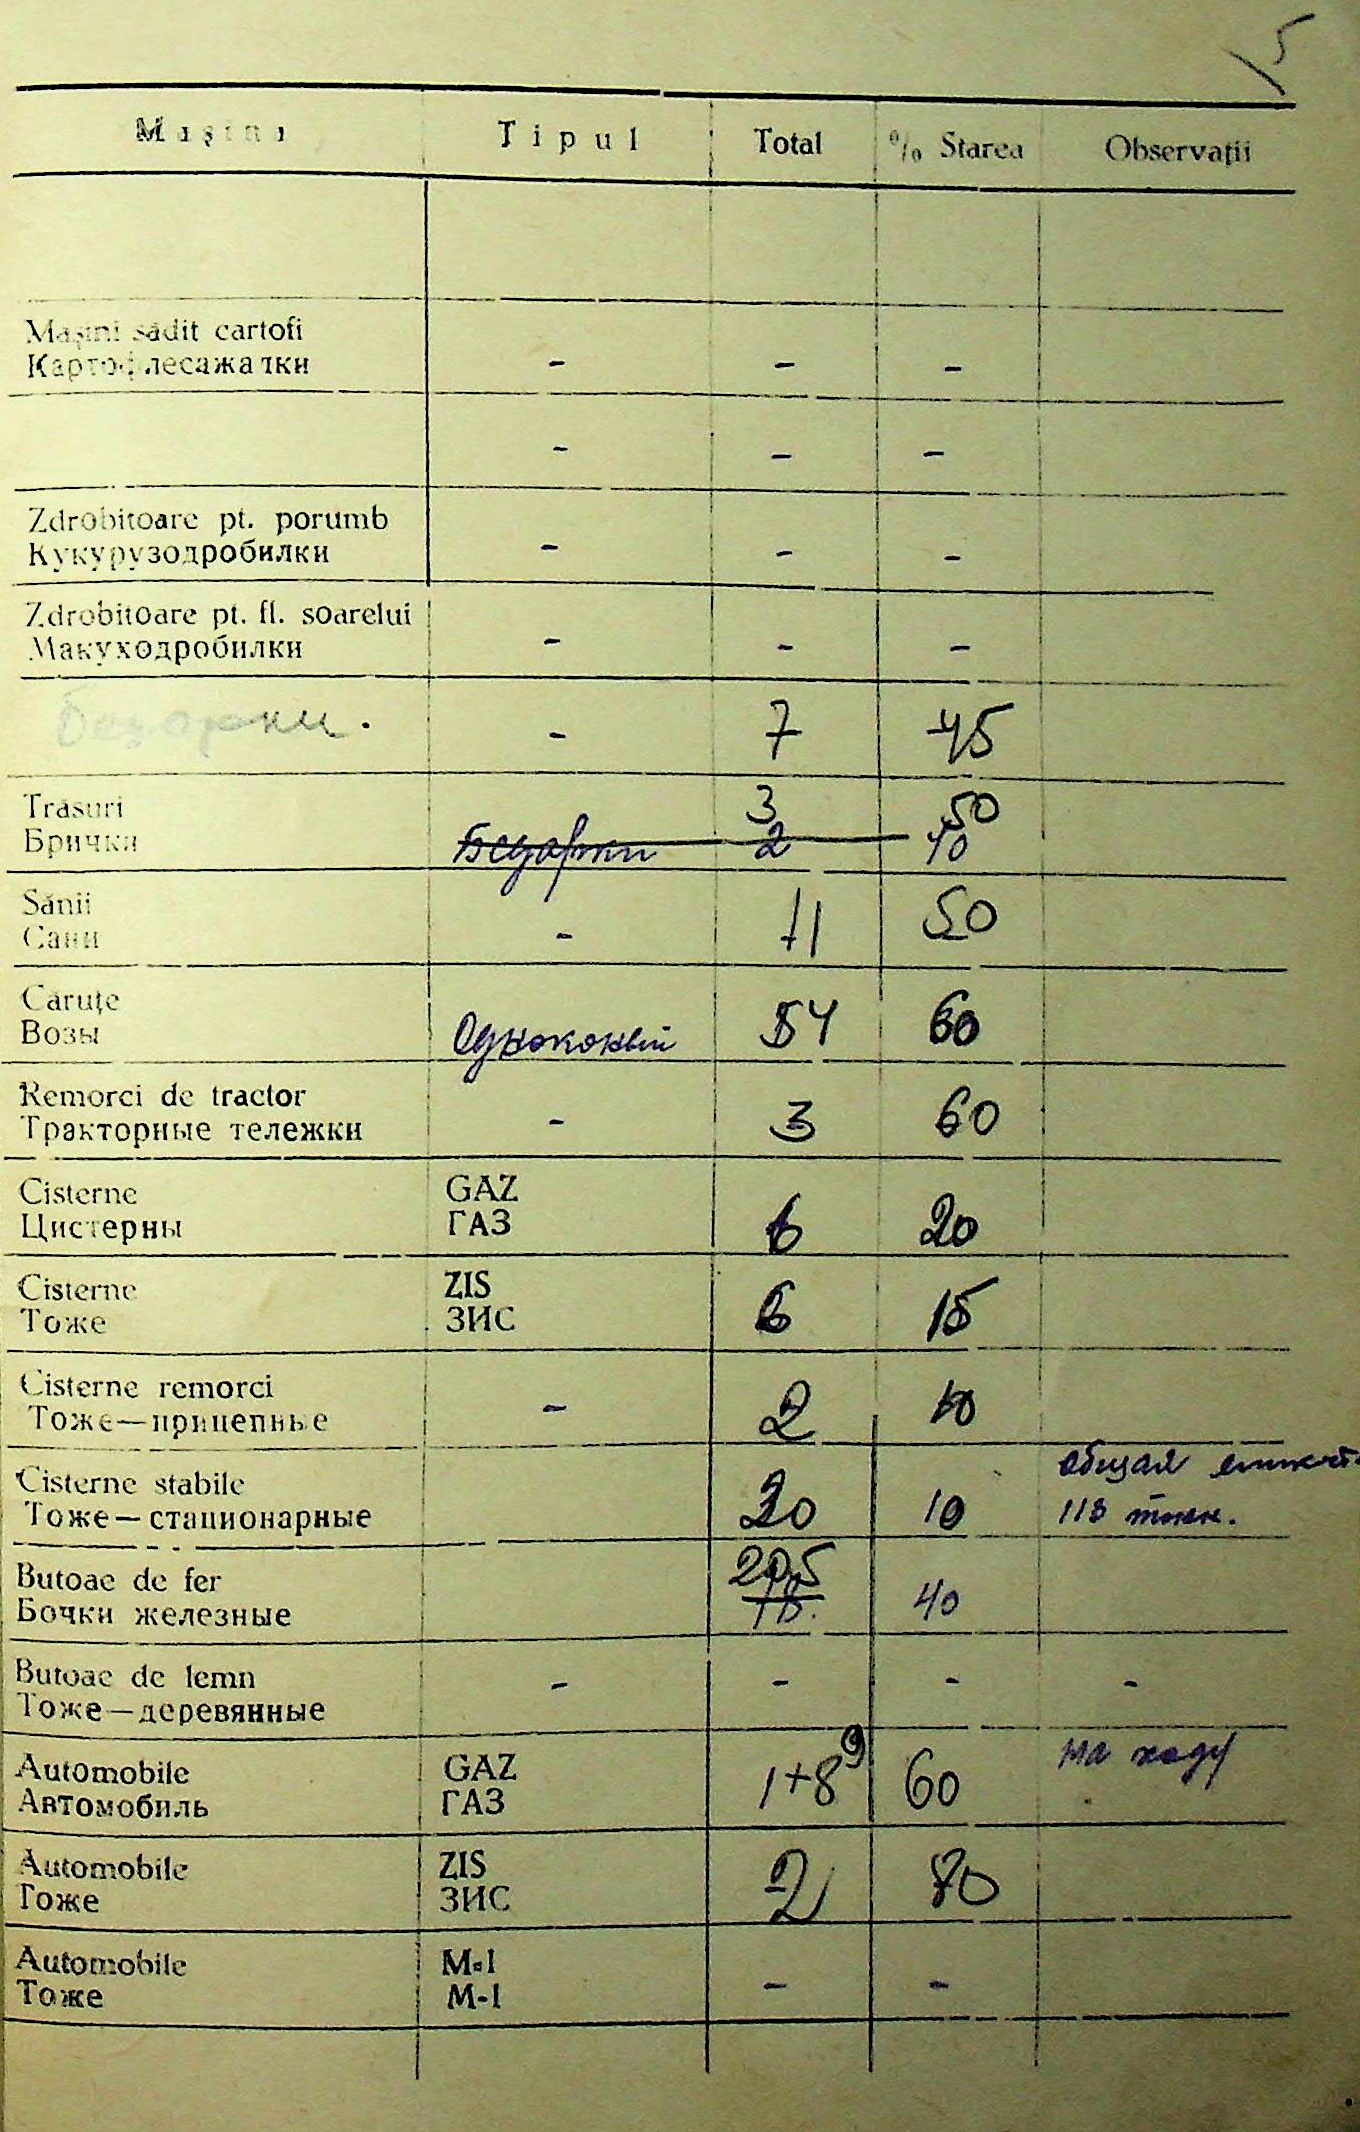 15
Mașina Tipul Total % Starea Observații
Mașini sădit cartofi
Картофлесажалки - - -
- - -
Zdrobitoare pt. porumb
Кукурузодробилки - - -
Zdrobitoare pt. fl. soarelui
Макуходробилки - - -
Бедарки. - 7 45
Trăsuri 3 50
Брички Бедарки 2 40
Sănii
Сани - 11 50
Căruțe
Возы Одноконый 54 60
Remorci de tractor
Тракторные тележки - 3 60
Cisterne GAZ
Цистерны ГАЗ 6 20
Cisterne ZIS
Тоже ЗИС 6 15
Cisterne remorci
Тоже—прицепные - 2 10
Cisterne stabile общая
Тоже—стационарные 20 10 113 тонн.
Butoae de fer 20,5
Бочки железные 18. 40
Butoae de lemn
Тоже—деревянные - - - -
Automobile GAZ 9 на ходу
Автомобиль ГАЗ 1+8 60
Automobile ZIS
Тоже ЗИС 2 70
Automobile M-1
Тоже М-1 - -